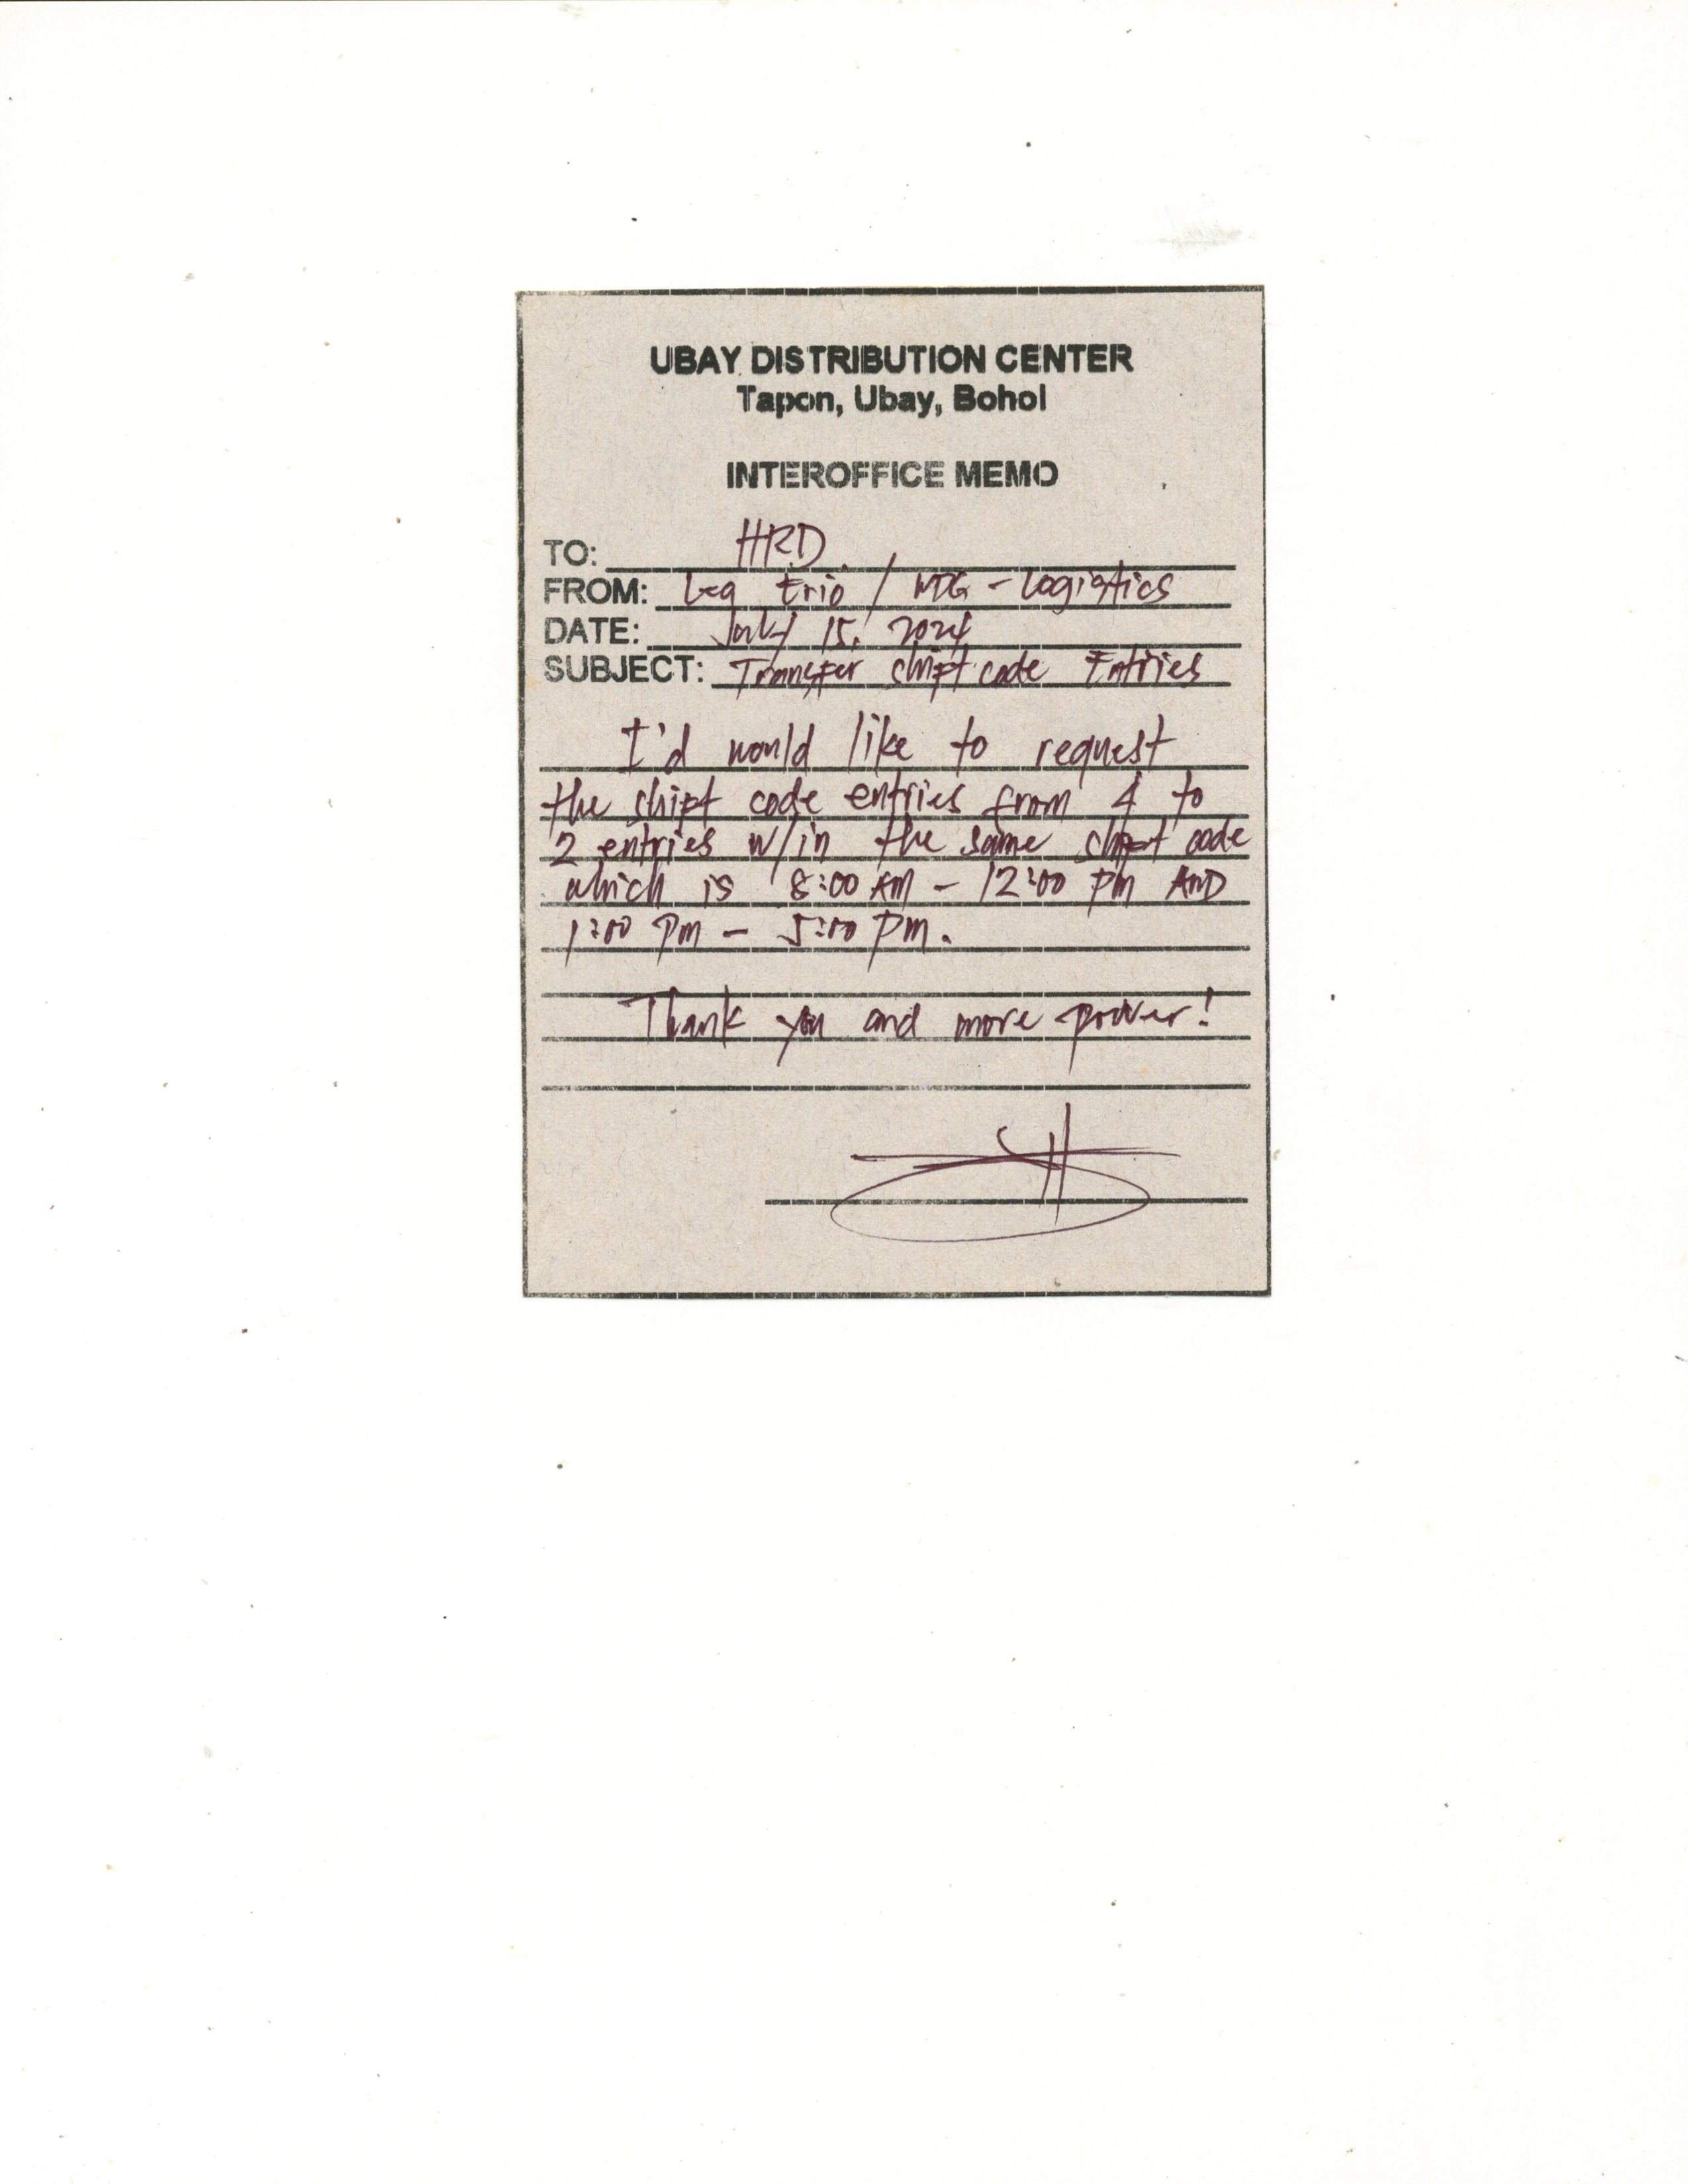 UBAY DISTRIBUTION CENTER
Tapon, Ubay, Bohol
INTEROFFICE MEMO
TO: HRD
FROM: Leg Erio / - Logistics
DATE: July 15, 2024
SUBJECT: Transfer shipt code Entries
I'd would like to request
the shipt code entries from 4 to
2 entries w/in the same shipt code
which is 8:00 AM - 12:00 PM AND
1:00 PM - 5:00 PM.
Thank you and more power!